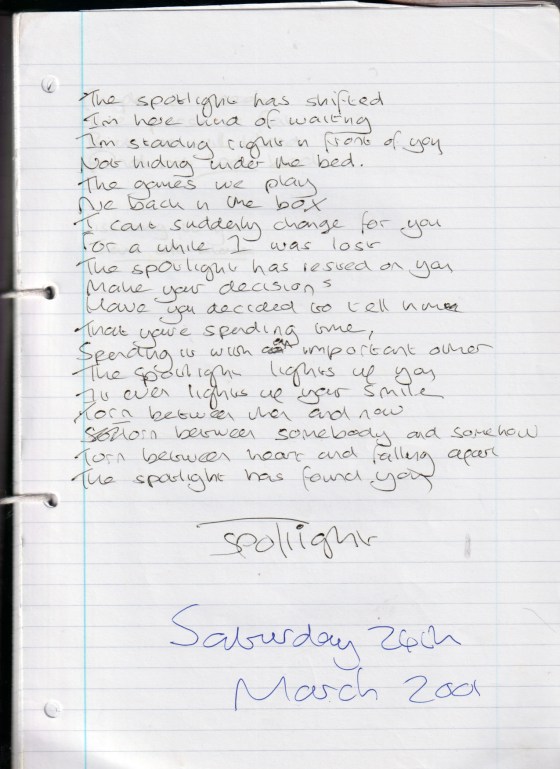 The spotlight has shifted
Im here kind of waiting
Im standing right in front of you
Not hiding under the bed.
The games we play
Are back in the box
I cant suddenly change for you
For a while I was lost
The spotlight has rested on you
Make your decisions
Have you decided to tell
That you're spending time,
Spending it with an important other
The spotlight lights up you
It even lights up your smile
Torn between then and now
Torn between somebody and somehow
Torn between heart and falling apart
The spotlight has found you
Spotlight
Saturday 24th
March 2001